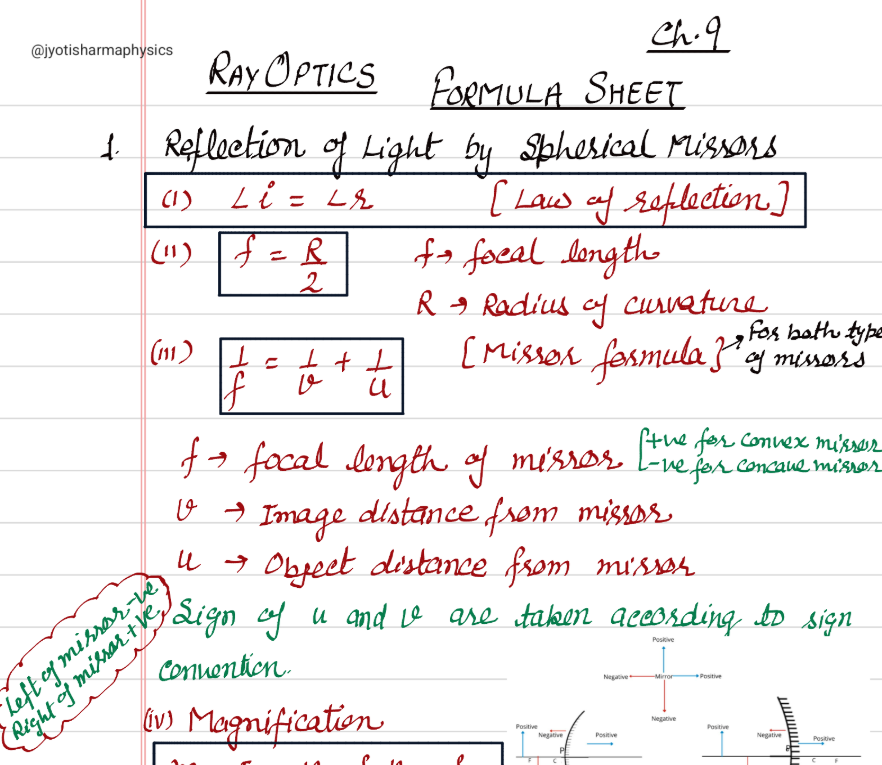 Ch.9
@jyotisharmaphysics
RAY OPTICS FORMULA SHEET
1. Reflection of Light by Spherical Mirrors
(i) ∠i = ∠r [Law of reflection]
(ii) f = R/2 f → focal length
R → Radius of curvature
(iii) 1/f = 1/v + 1/u [Mirror formula] → For both type
of mirrors
f → focal length of mirror [+ve for convex mirror
-ve for concave mirror
v → Image distance from mirror
u → Object distance from mirror
Left of mirror -ve
Right of mirror +ve
Sign of u and v are taken according to sign
convention.
Positive
Negative Mirror Positive
Negative
(iv) Magnification
Positive
Negative
Positive
P
F C
Positive
Negative
Positive
P
C F